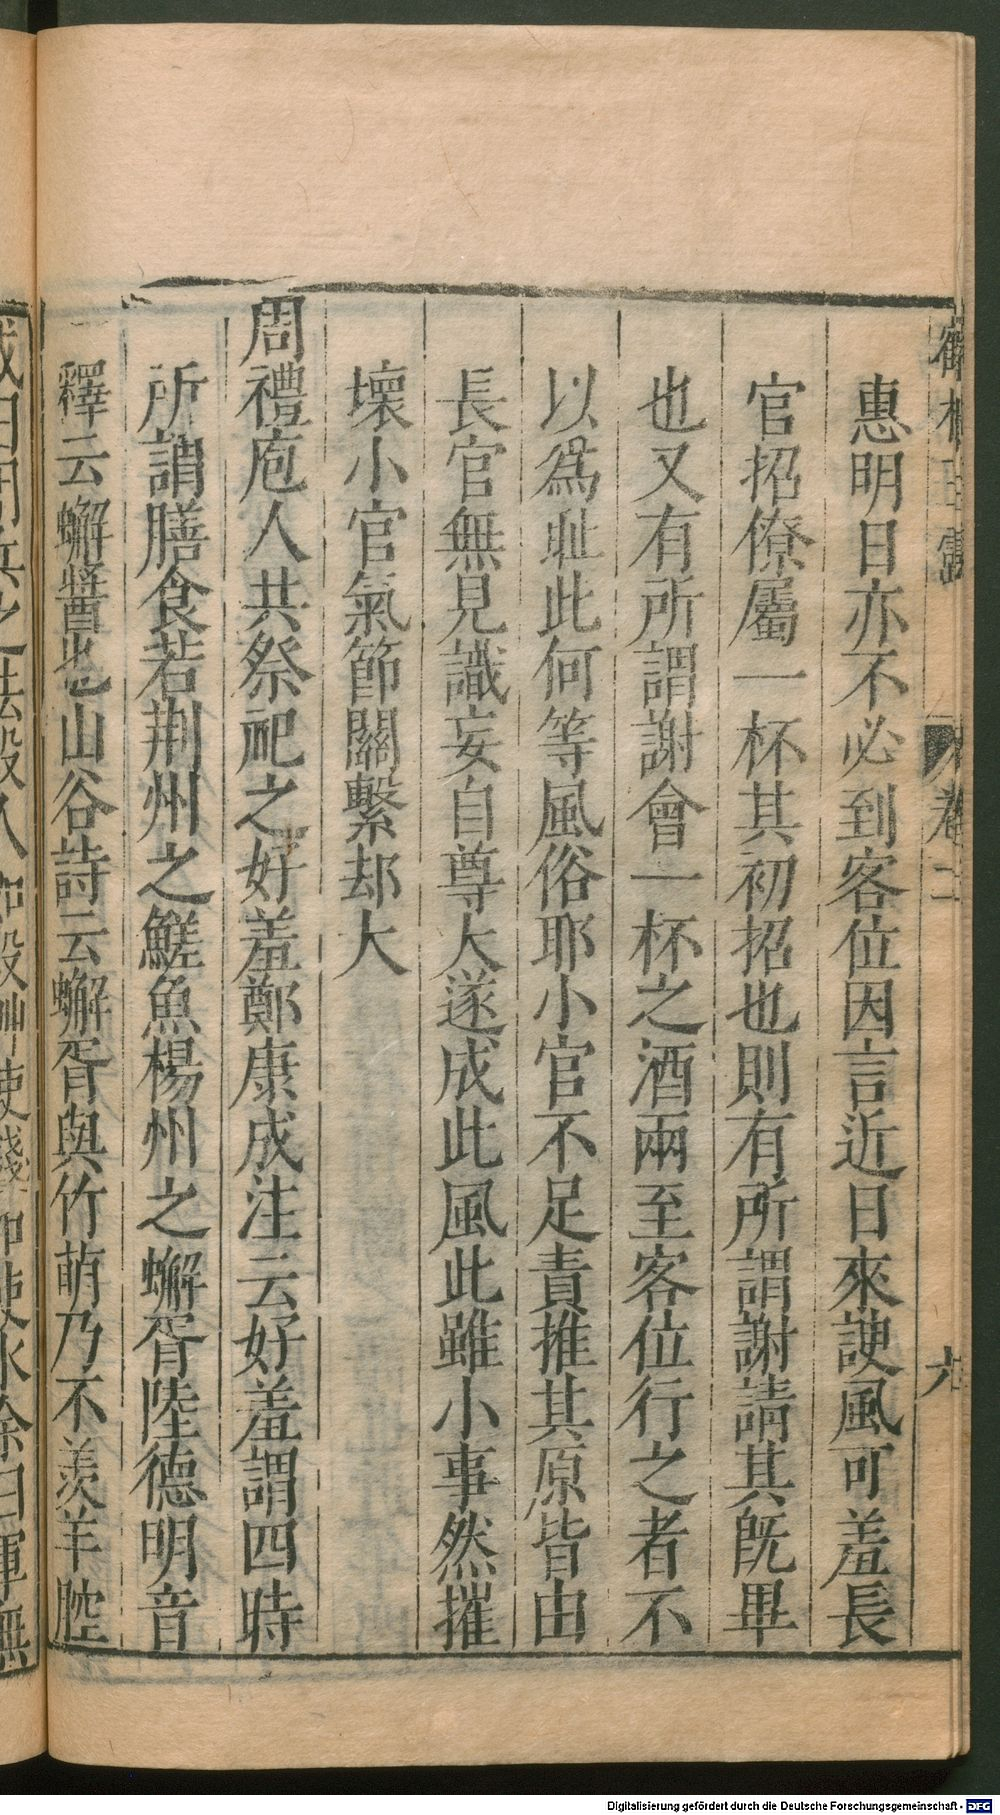 鶴林玉露 卷二 九
惠明日亦不必到客位因言近日來諛風可羞長
官招僚屬一杯其初招也則有所謂謝請其旣畢
也又有所謂謝會一杯之酒兩至客位行之者不
以爲耻此何等風俗耶小官不足責推其原皆由
長官無見識妄自尊大遂成此風此雖小事然摧
壞小官氣節關繫却大
周禮庖人共祭祀之好羞鄭康成注云好羞謂四時
所謂膳食若荆州之鱃魚楊州之蠏胥陸德明音
釋云蠏醬也山谷詩云蠏胥與竹萌乃不羨羊腔
Digitalisierung gefördert durch die Deutsche Forschungsgemeinschaft - DFG